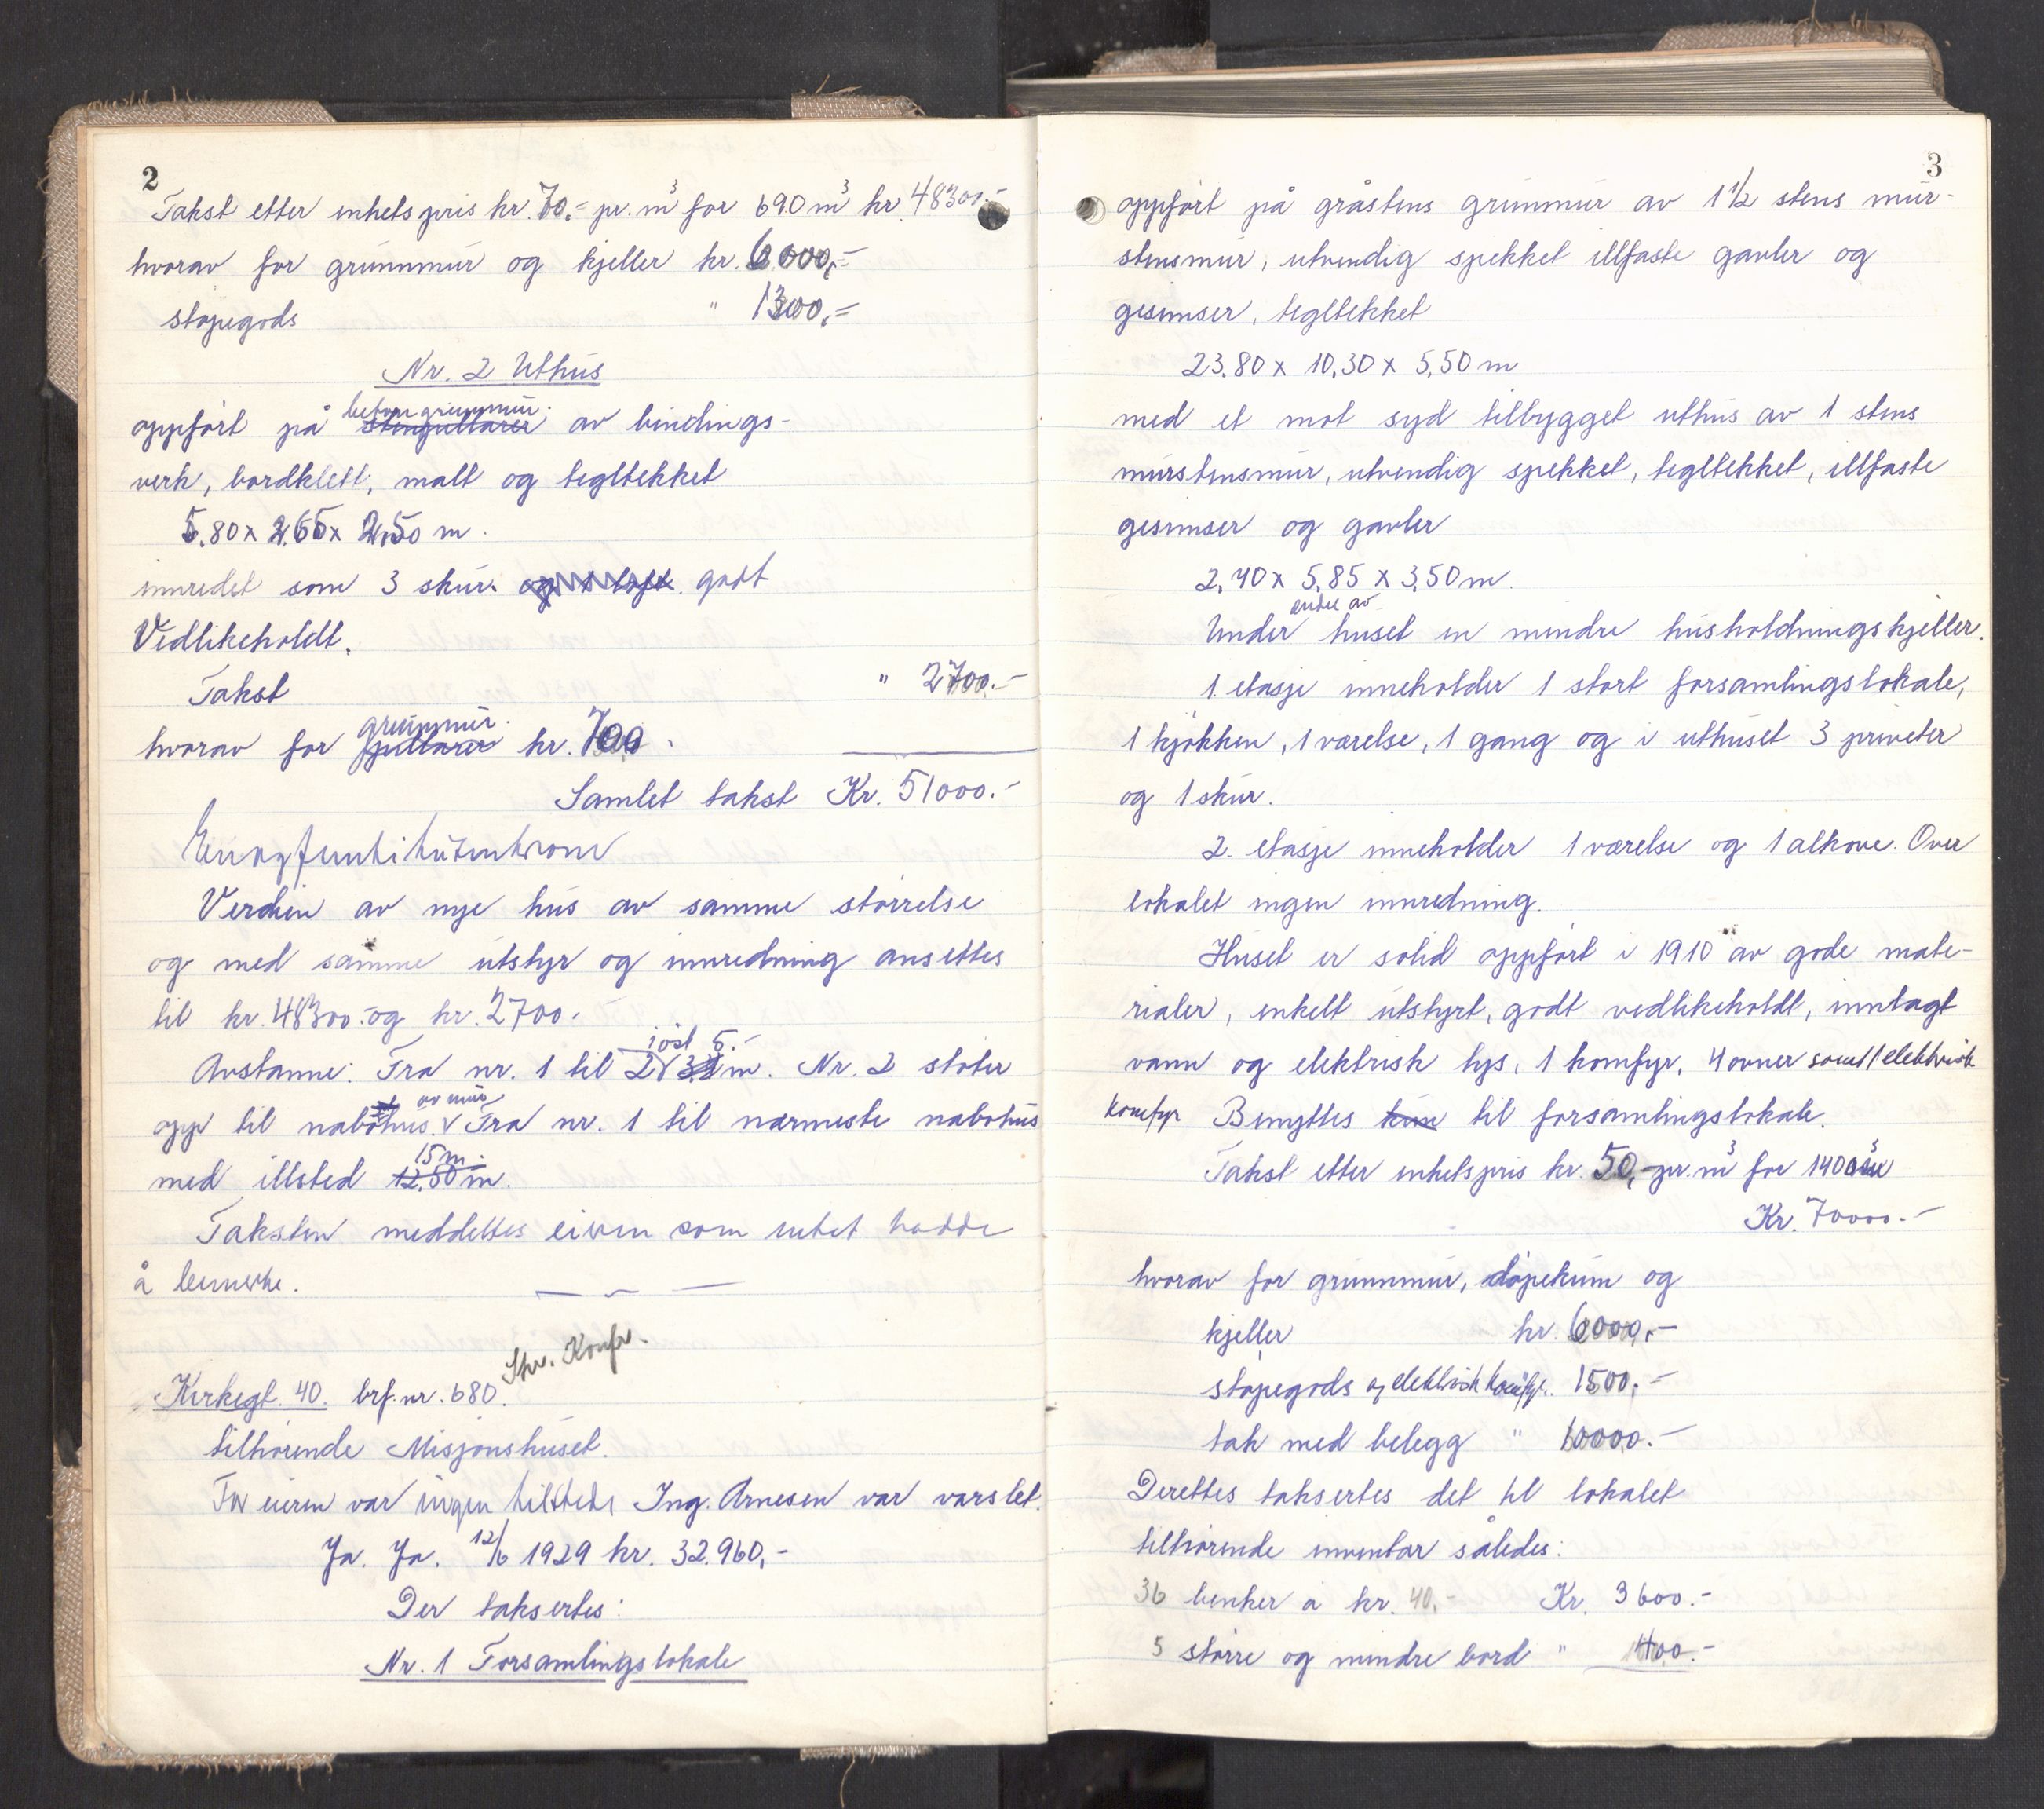 2
Takst etter enhetspris kr. 70.- pr. m³ for 690 m³ kr. 48300.-
hvorav for grunnmur og kjeller kr. 6000,-
støpegods " 1300,-
Nr. 2 Uthus
oppført på betongrunnmur stenpillarer av bindings-
verk, bordklett, malt og tegltekket
5.80 x 2.65 x 2.50 m.
innredet som 3 skur. og 1 loft. godt
Vedlikeholdt.
Takst " 2700.-
hvorav for grunnmur. pillarer kr. 700.
Samlet takst Kr. 51000.-
Verdien av nye hus av samme størrelse
og med samme utstyr og innredning ansettes
til kr. 48300.- og kr. 2700.
Avstanne: Fra nr. 1 til 2 i øst 5.- m. Nr. 2 støter
opp til nabohus av mur. Fra nr. 1 til nærmeste nabohus
med illsted 15 m. 12.50 m.
Taksten meddeltes eieren som intet hadde
å bemerke.
Spr. Konfr.
Kirkegt. 40. brf. nr. 680.
tilhørende Misjonshuset.
For eieren var ingen tilstede, Ing. Arnesen var varslet.
Ja. Ja. 12/6 1929 kr. 32.960,-
Der taksertes:
Nr. 1 Forsamlingslokale
3
oppført på gråstens grunnmur av 1 1/2 stens mur-
stensmur, utvendig spekket illfaste gavler og
gesimser, tegltekket
23.80 x 10.30 x 5.50 m
med et mot syd tilbygget uthus av 1 stens
murstensmur, utvendig spekket, tegltekket, illfaste
gesimser og gavler
2.40 x 5.85 x 3.50 m.
Under endel av huset en mindre husholdningskjeller.
1. etasje inneholder 1 stort forsamlingslokale,
1 kjøkken, 1 værelse, 1 gang og i uthuset 3 priveter
og 1 skur.
2. etasje inneholder 1 værelse og 1 alkove. Over
lokalet ingen innredning.
Huset er solid oppført i 1910 av gode mate-
rialer, enkelt utstyrt, godt vedlikeholdt, innlagt
vann og elektrisk lys, 1 komfyr, 4 ovner samt 1 elektrisk
komfyr Benyttes kun til forsamlingslokale.
Takst etter enhetspris kr. 50,- pr. m³ for 1400 m³
Kr. 70000.-
hvorav for grunnmur, døpekum og
kjeller kr. 6000,-
støpegods og elektrisk komfyr. 1500,-
tak med belegg " 10000.-
Derettes taksertes det til lokalet
tilhørende inventar således:
36 benker a kr. 40,- Kr. 3600.-
5 større og mindre bord " 400.-